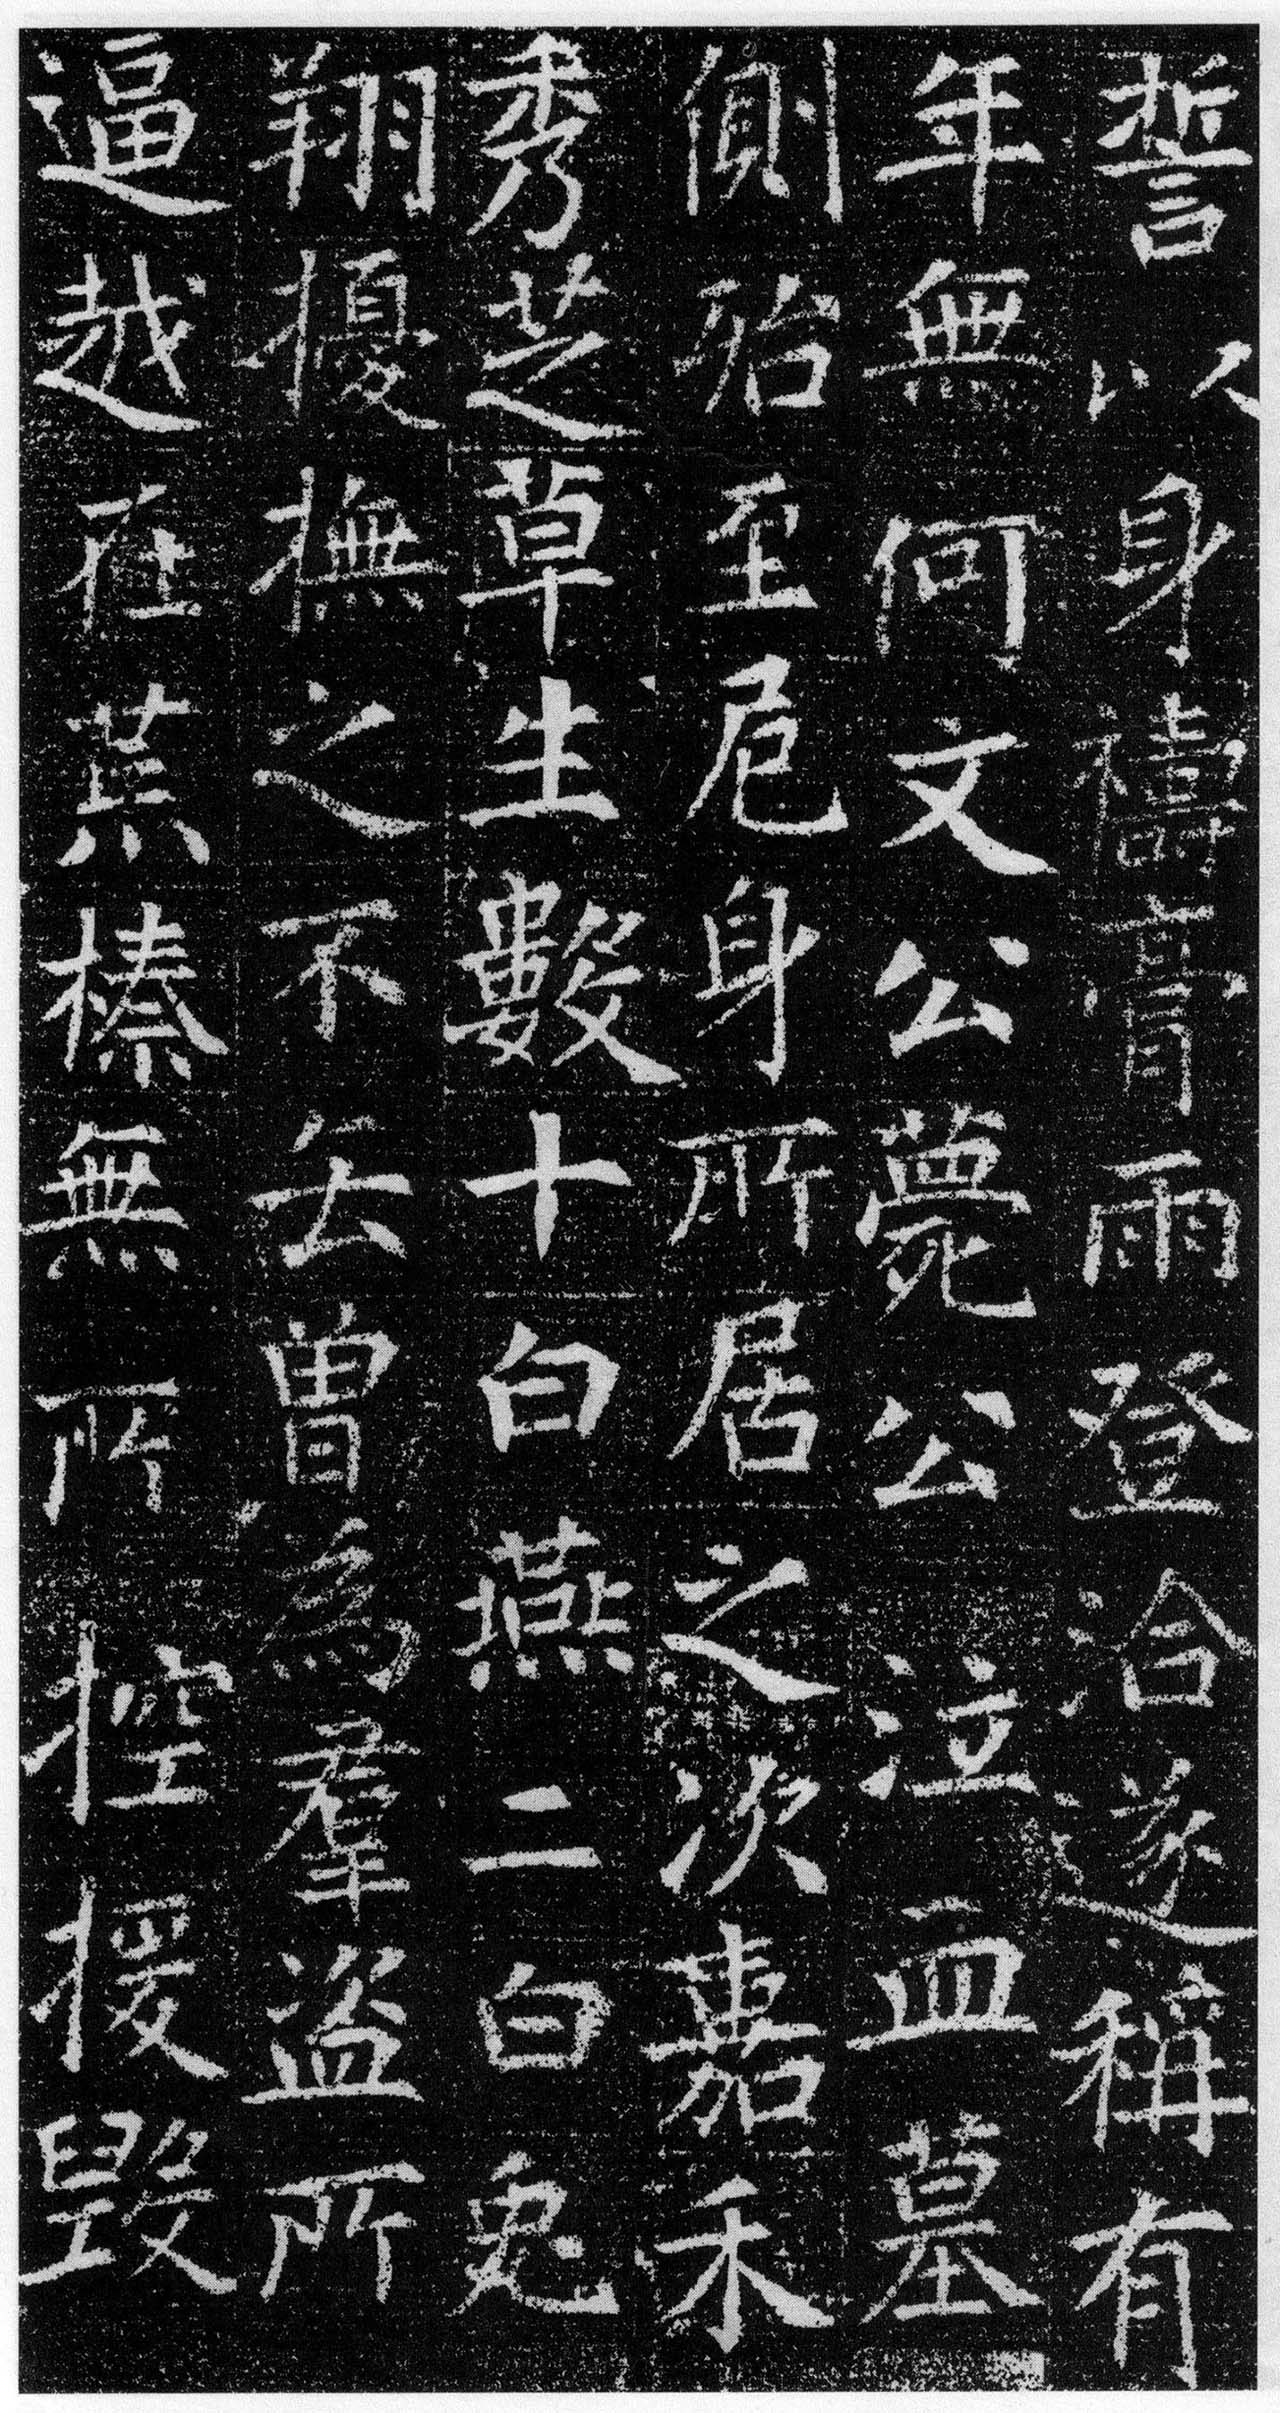 誓以身禱膏雨登洽遂稱有
年無何文公薨公泣血墓
側殆至危身所居之次嘉禾
秀芝草生數十白燕二白兔
翔擾撫之不去曾為羣盜所
逼越在蕪榛無所控援毀